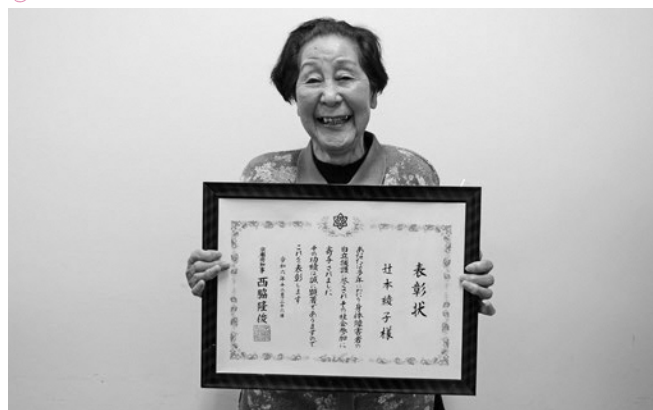 表彰状
辻本綾子様
あなたは多年にわたり身体障害者の
自立援護に尽され その社会参加に
寄与されました
その功績は誠に顕著でありますので
これを表彰します
令和六年十二月二十六日
京都府知事 西脇隆俊